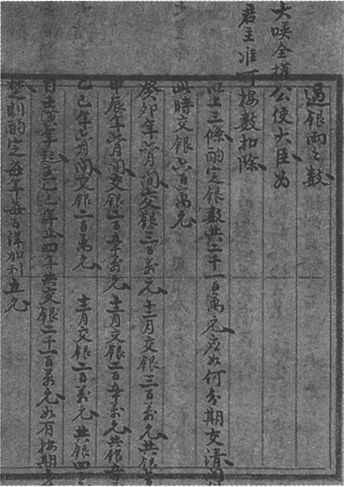 大唤全權公使大臣為
君主准可按數扣除
過銀兩之數
以上三條酌定銀數共二千一百萬元應如何分期交清
此時交銀六百萬元
癸卯年六月間交銀三百萬元十二月交銀三百萬元共銀
甲辰年六月間交銀二百五十萬元十二月交銀二百五十萬元共銀五
乙巳年六月間交銀二百萬元十二月交銀二百萬元共銀四
自壬寅年起至乙巳年止四年共交銀二千一百萬元如有按期
然則酌定每年每百元加利五元